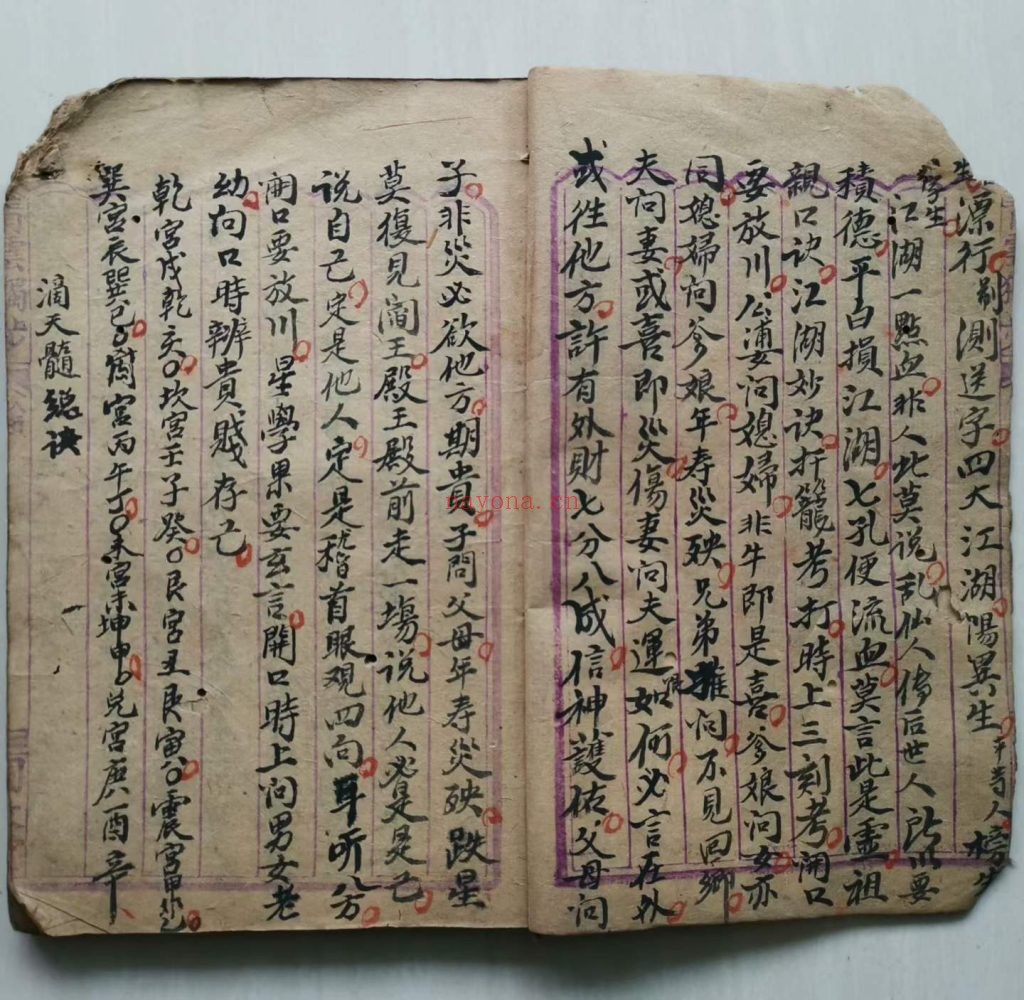 生漂行剐測送字四大江湖陽異生平等人榜生
孝生江湖一點血非人此莫说乱仙人傳后世人所以要
積德平白損江湖七孔便流血莫言此是靈祖
親口诀江湖妙诀扦籠考打時上三刻考開口
要放川公婆问媳婦非牛即是喜爹娘问女亦
同媳婦问爹娘年寿災殃兄弟推问不見回鄉
夫问妻或喜即災傷妻问夫運如何必言在外
或往他方許有外財七分八成信神護佑父母问
子非災必欲他方期貴子問父母年寿災殃跌星
莫復見閻王殿王殿前走一塲说他人必是是己
说自己定是他人定是稽首眼观四向耳听八方
開口要放川星學果要玄言開口時上问男女老
幼向口時辨貴賤存己
乾宮戌乾亥坎宮壬子癸艮宮丑艮寅震宮甲卯乙
巽宮辰巽巳离宮丙午丁未宮未坤申兑宮庚酉辛
滴天髓總诀
nayona.cn